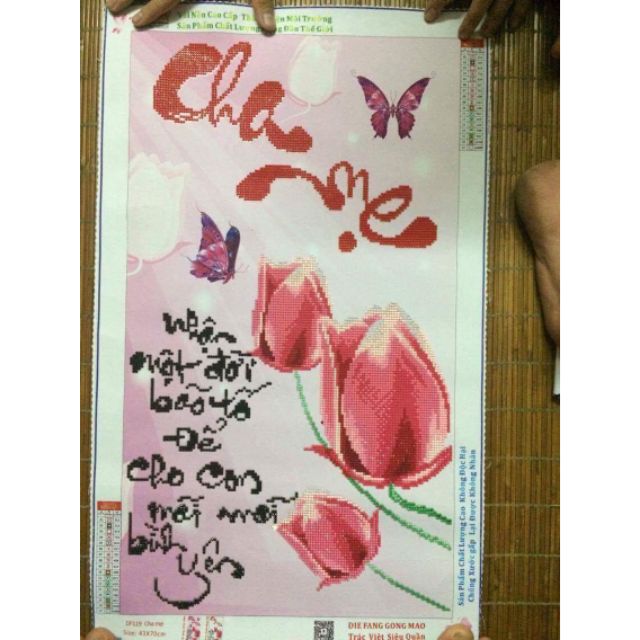 Vải Nền Cao Cấp Thân Thiện Môi Trường
Sản Phẩm Chất Lượng Hàng Đầu Thế Giới
Cha
Mẹ
Nhận
một đời
bão tố
Để
cho con
mãi mãi
bình
yên
Sản Phẩm Chất Lượng Cao Không Độc Hại
Chống Xước gấp Lại Được Không Nhăn
DF119 Cha mẹ
Size: 43X70cm
DIE FANG GONG MAO
Trác Việt Siêu Quần